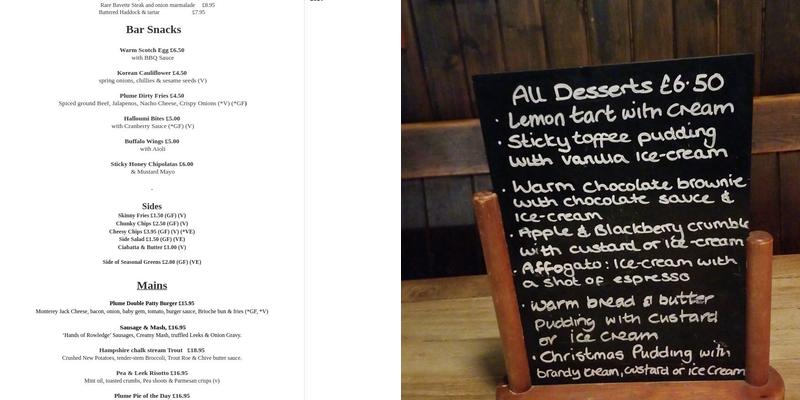 Rare Bavette Steak and onion marmalade £8.95
Battered Haddock & tartar £7.95
Bar Snacks
Warm Scotch Egg £6.50
with BBQ Sauce
Korean Cauliflower £4.50
spring onions, chillies & sesame seeds (V)
Plume Dirty Fries £4.50
Spiced ground Beef, Jalapenos, Nacho Cheese, Crispy Onions (*V) (*GF)
Halloumi Bites £5.00
with Cranberry Sauce (*GF) (V)
Buffalo Wings £5.00
with Aioli
Sticky Honey Chipolatas £6.00
& Mustard Mayo
.
Sides
Skinny Fries £1.50 (GF) (V)
Chunky Chips £2.50 (GF) (V)
Cheesy Chips £3.95 (GF) (V) (*VE)
Side Salad £1.50 (GF) (VE)
Ciabatta & Butter £1.00 (V)
Side of Seasonal Greens £2.00 (GF) (VE)
Mains
Plume Double Patty Burger £15.95
Monterey Jack Cheese, bacon, onion, baby gem, tomato, burger sauce, Brioche bun & fries (*GF, *V)
Sausage & Mash, £16.95
'Hands of Rowledge' Sausages, Creamy Mash, truffled Leeks & Onion Gravy.
Hampshire chalk stream Trout £18.95
Crushed New Potatoes, tender-stem Broccoli, Trout Roe & Chive butter sauce.
Pea & Leek Risotto £16.95
Mint oil, toasted crumbs, Pea shoots & Parmesan crisps (v)
Plume Pie of the Day £16.95
All Desserts £6.50
· Lemon tart with Cream
· Sticky toffee pudding
with vanilla ice-cream
· Warm Chocolate brownie
with chocolate sauce &
Ice-cream
· Apple & Blackberry crumble
with custard or ice-cream
· Affogato: Ice-cream with
a shot of espresso
· Warm bread & butter
pudding with custard
or ice cream
· Christmas Pudding with
brandy cream, custard or ice Cream